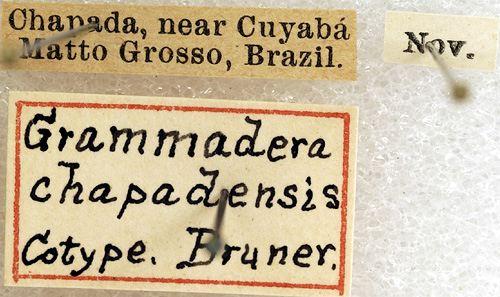 Chapada, near Cuyabá
Matto Grosso, Brazil.
Nov.
Grammadera
chapadensis
Cotype. Bruner.